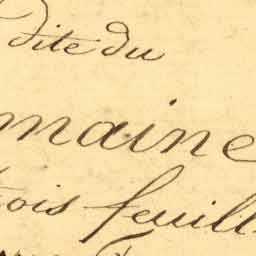 dite du
maine
ois feuill